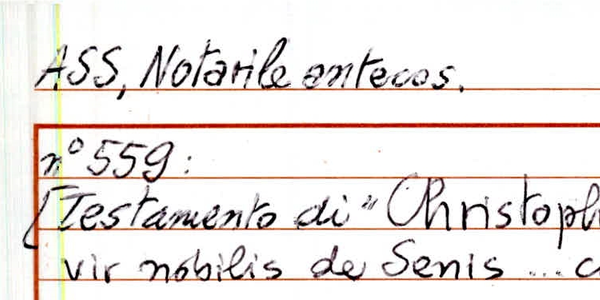 ASS, Notarile antecos.
n° 559:
[Testamento di "Christoph
vir nobilis de Senis ... c